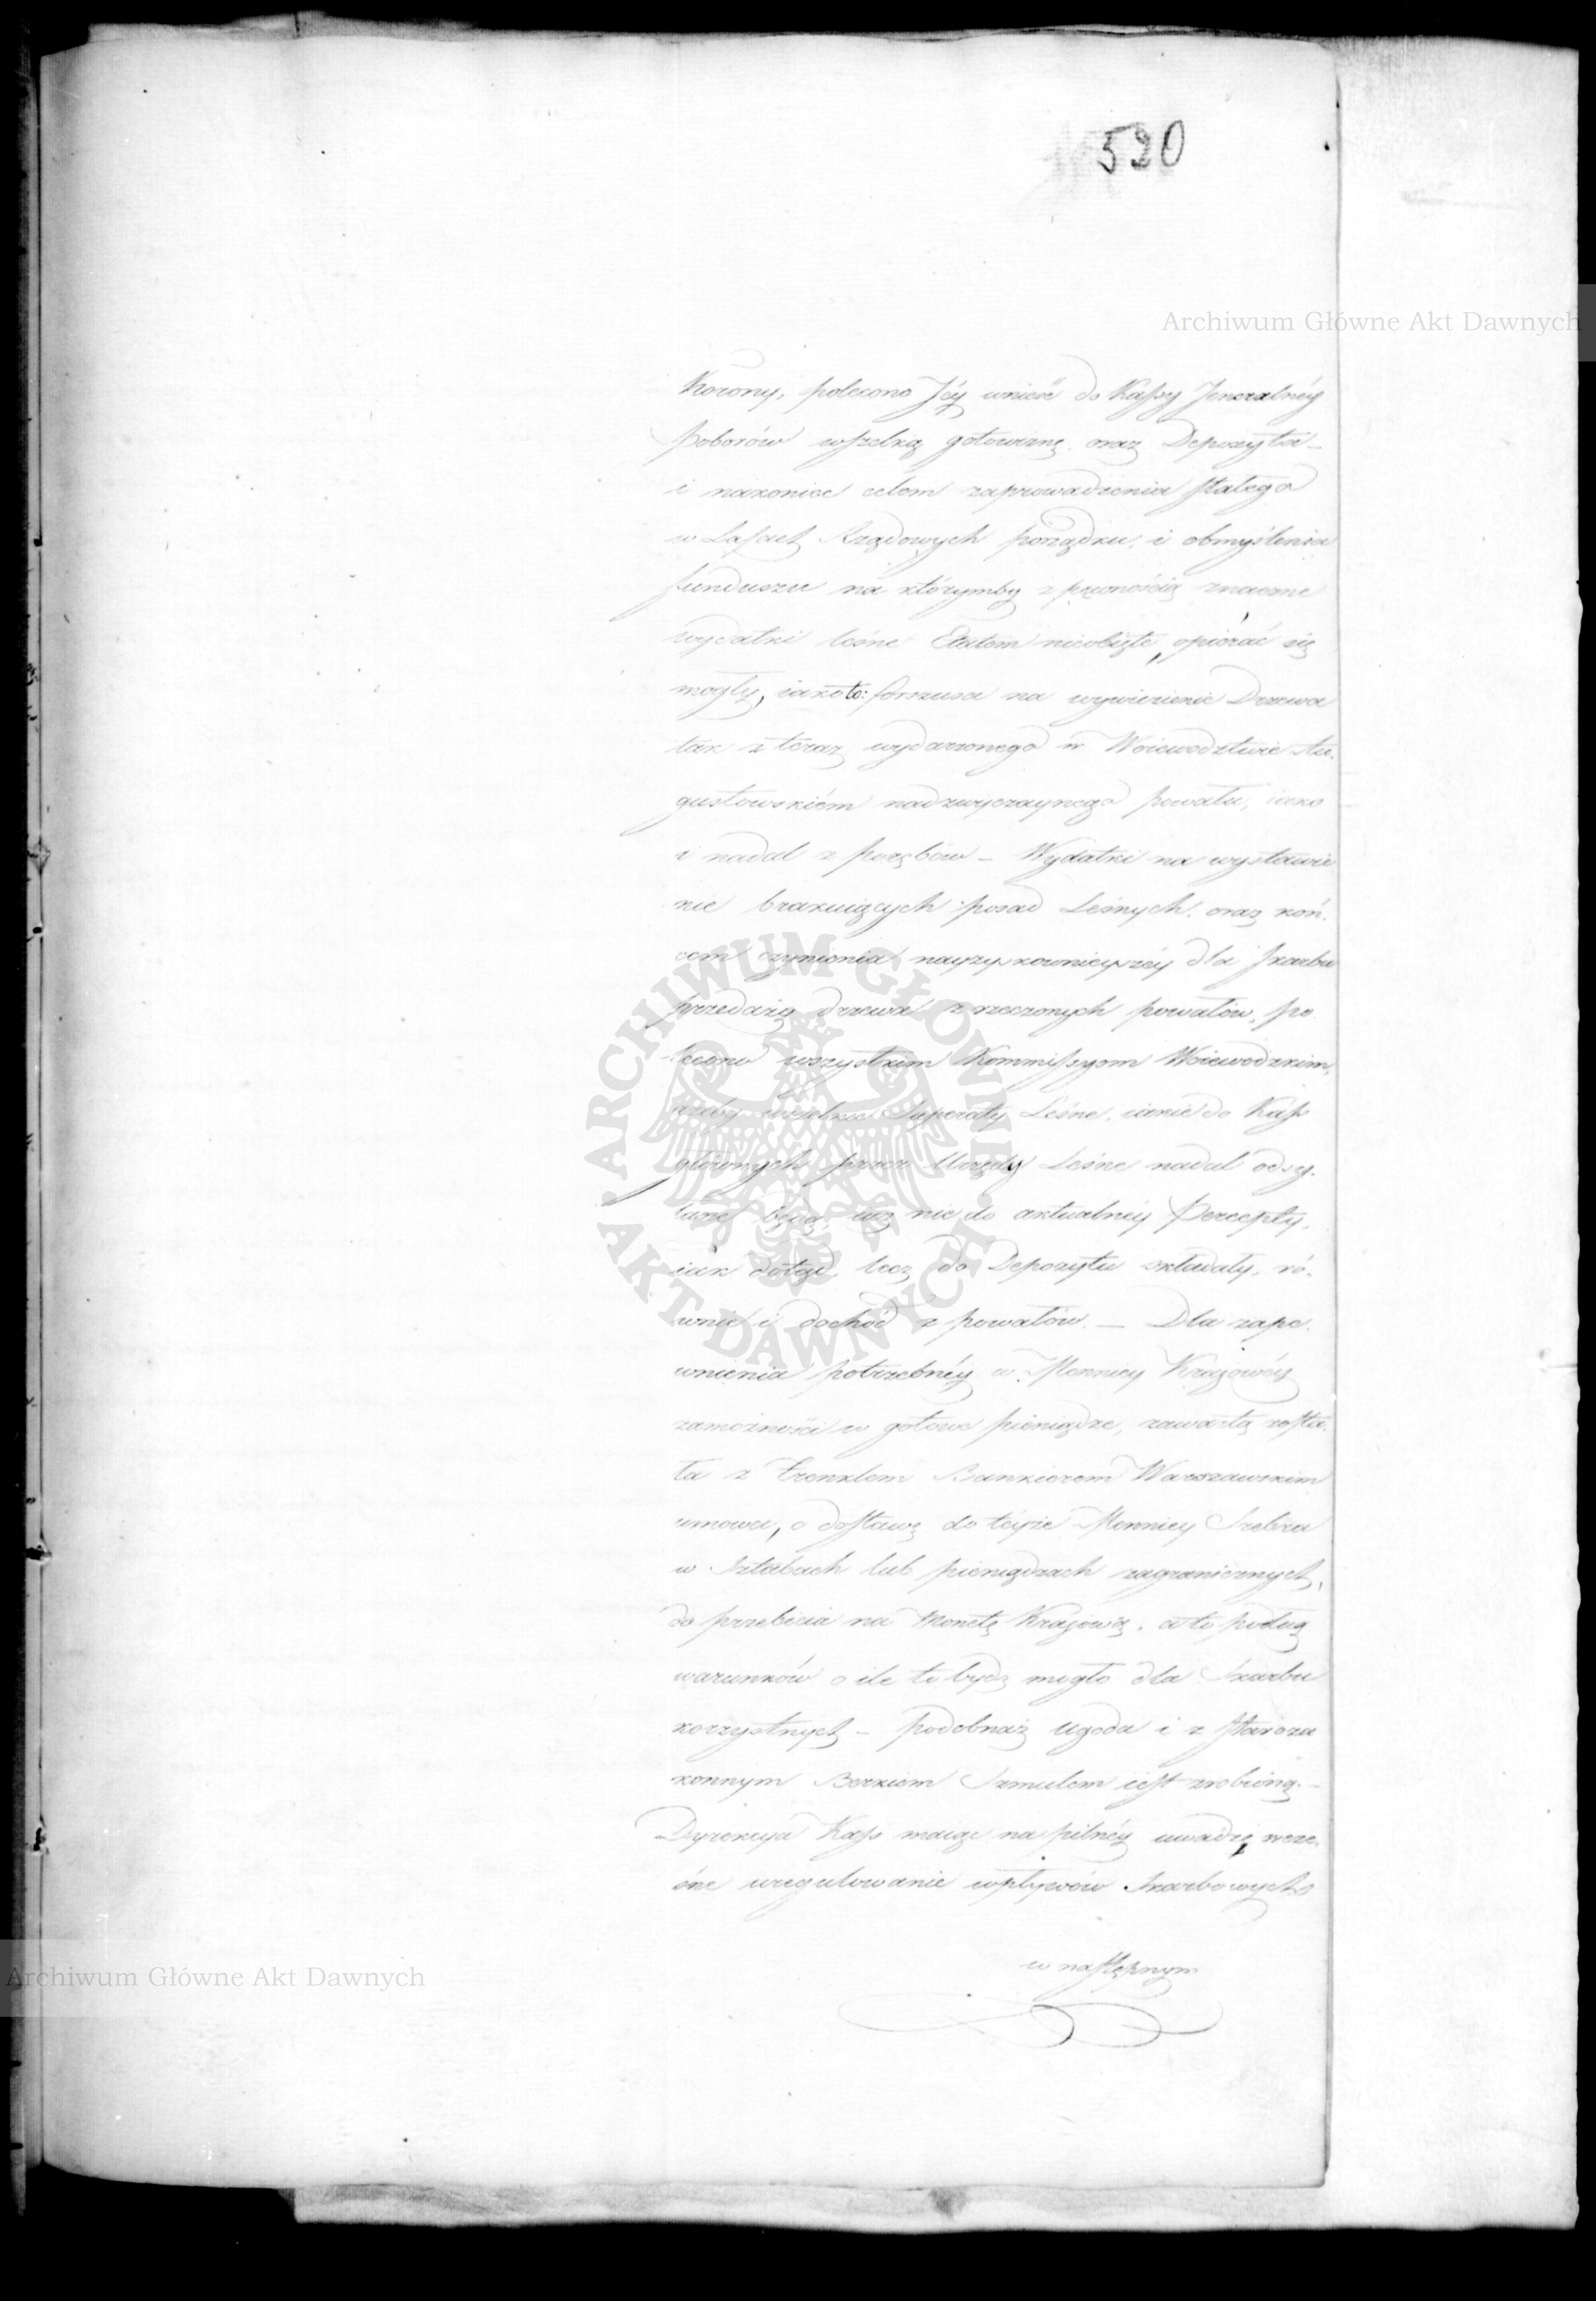 520
Archiwum Główne Akt Dawnych
Korony, polecono Jéy wnieść do Kassy Jeneralnéy
Poborów wszelką gotowiznę oraz Depozyta –
i nakoniec celem zaprowadzenia stałego
w Lasach Rządowych porządku, i obmyślenia
funduszu na którymby z pewnością znaczne
wydatki leśne Etatem nieobjęte, opiérać się
mogły, iakoto: forszusa na wywiezienie Drzewa
tak z teraz wydarzonego w Woiewodztwie Au-
gustowskiém nadzwyczaynego powału, iako
i nadal z porębów – Wydatki na wystawie
nie brakuiących posad Leśnych, oraz koń-
cem czynienia nayzyskownieyszéy dla Skarbu
przedaży drzewa z rzeczonych powałów, po
lecono wszystkim Kommissyom Woiewodzkim,
ażeby wszelkie Superaty Leśne, iakie do Kass
głównych przez Urzędy Leśne nadal odsy-
łane będą, już nie do aktualnéy Percepty,
iak dotąd, lecz do Depozytu składały, ró-
wnie i dochód z powałów. – Dla zape-
wnienia potrzebnéy w Mennicy Krajowéy
zamożności w gotowe pieniądze, zawartą zosta-
ła z Frenklem Bankierem Warszawskim
umowa, o dostawę do téyże Mennicy Srebra
w Sztabach lub pieniądzach zagranicznych,
do przebicia na Monetę Krajową, a to podług
warunków o ile to bydź mogło dla Skarbu
korzystnych – Podobnaż ugoda i z Staroza
konnym Berkiem Szmulem iest zrobioną. –
Dyrekcya Kass maiąc na pilnéy uwadze, wcze-
śne uregulowanie wpływów Skarbowych
w następnym
Archiwum Główne Akt Dawnych
ARCHIWUM GŁÓWNE AKT DAWNYCH